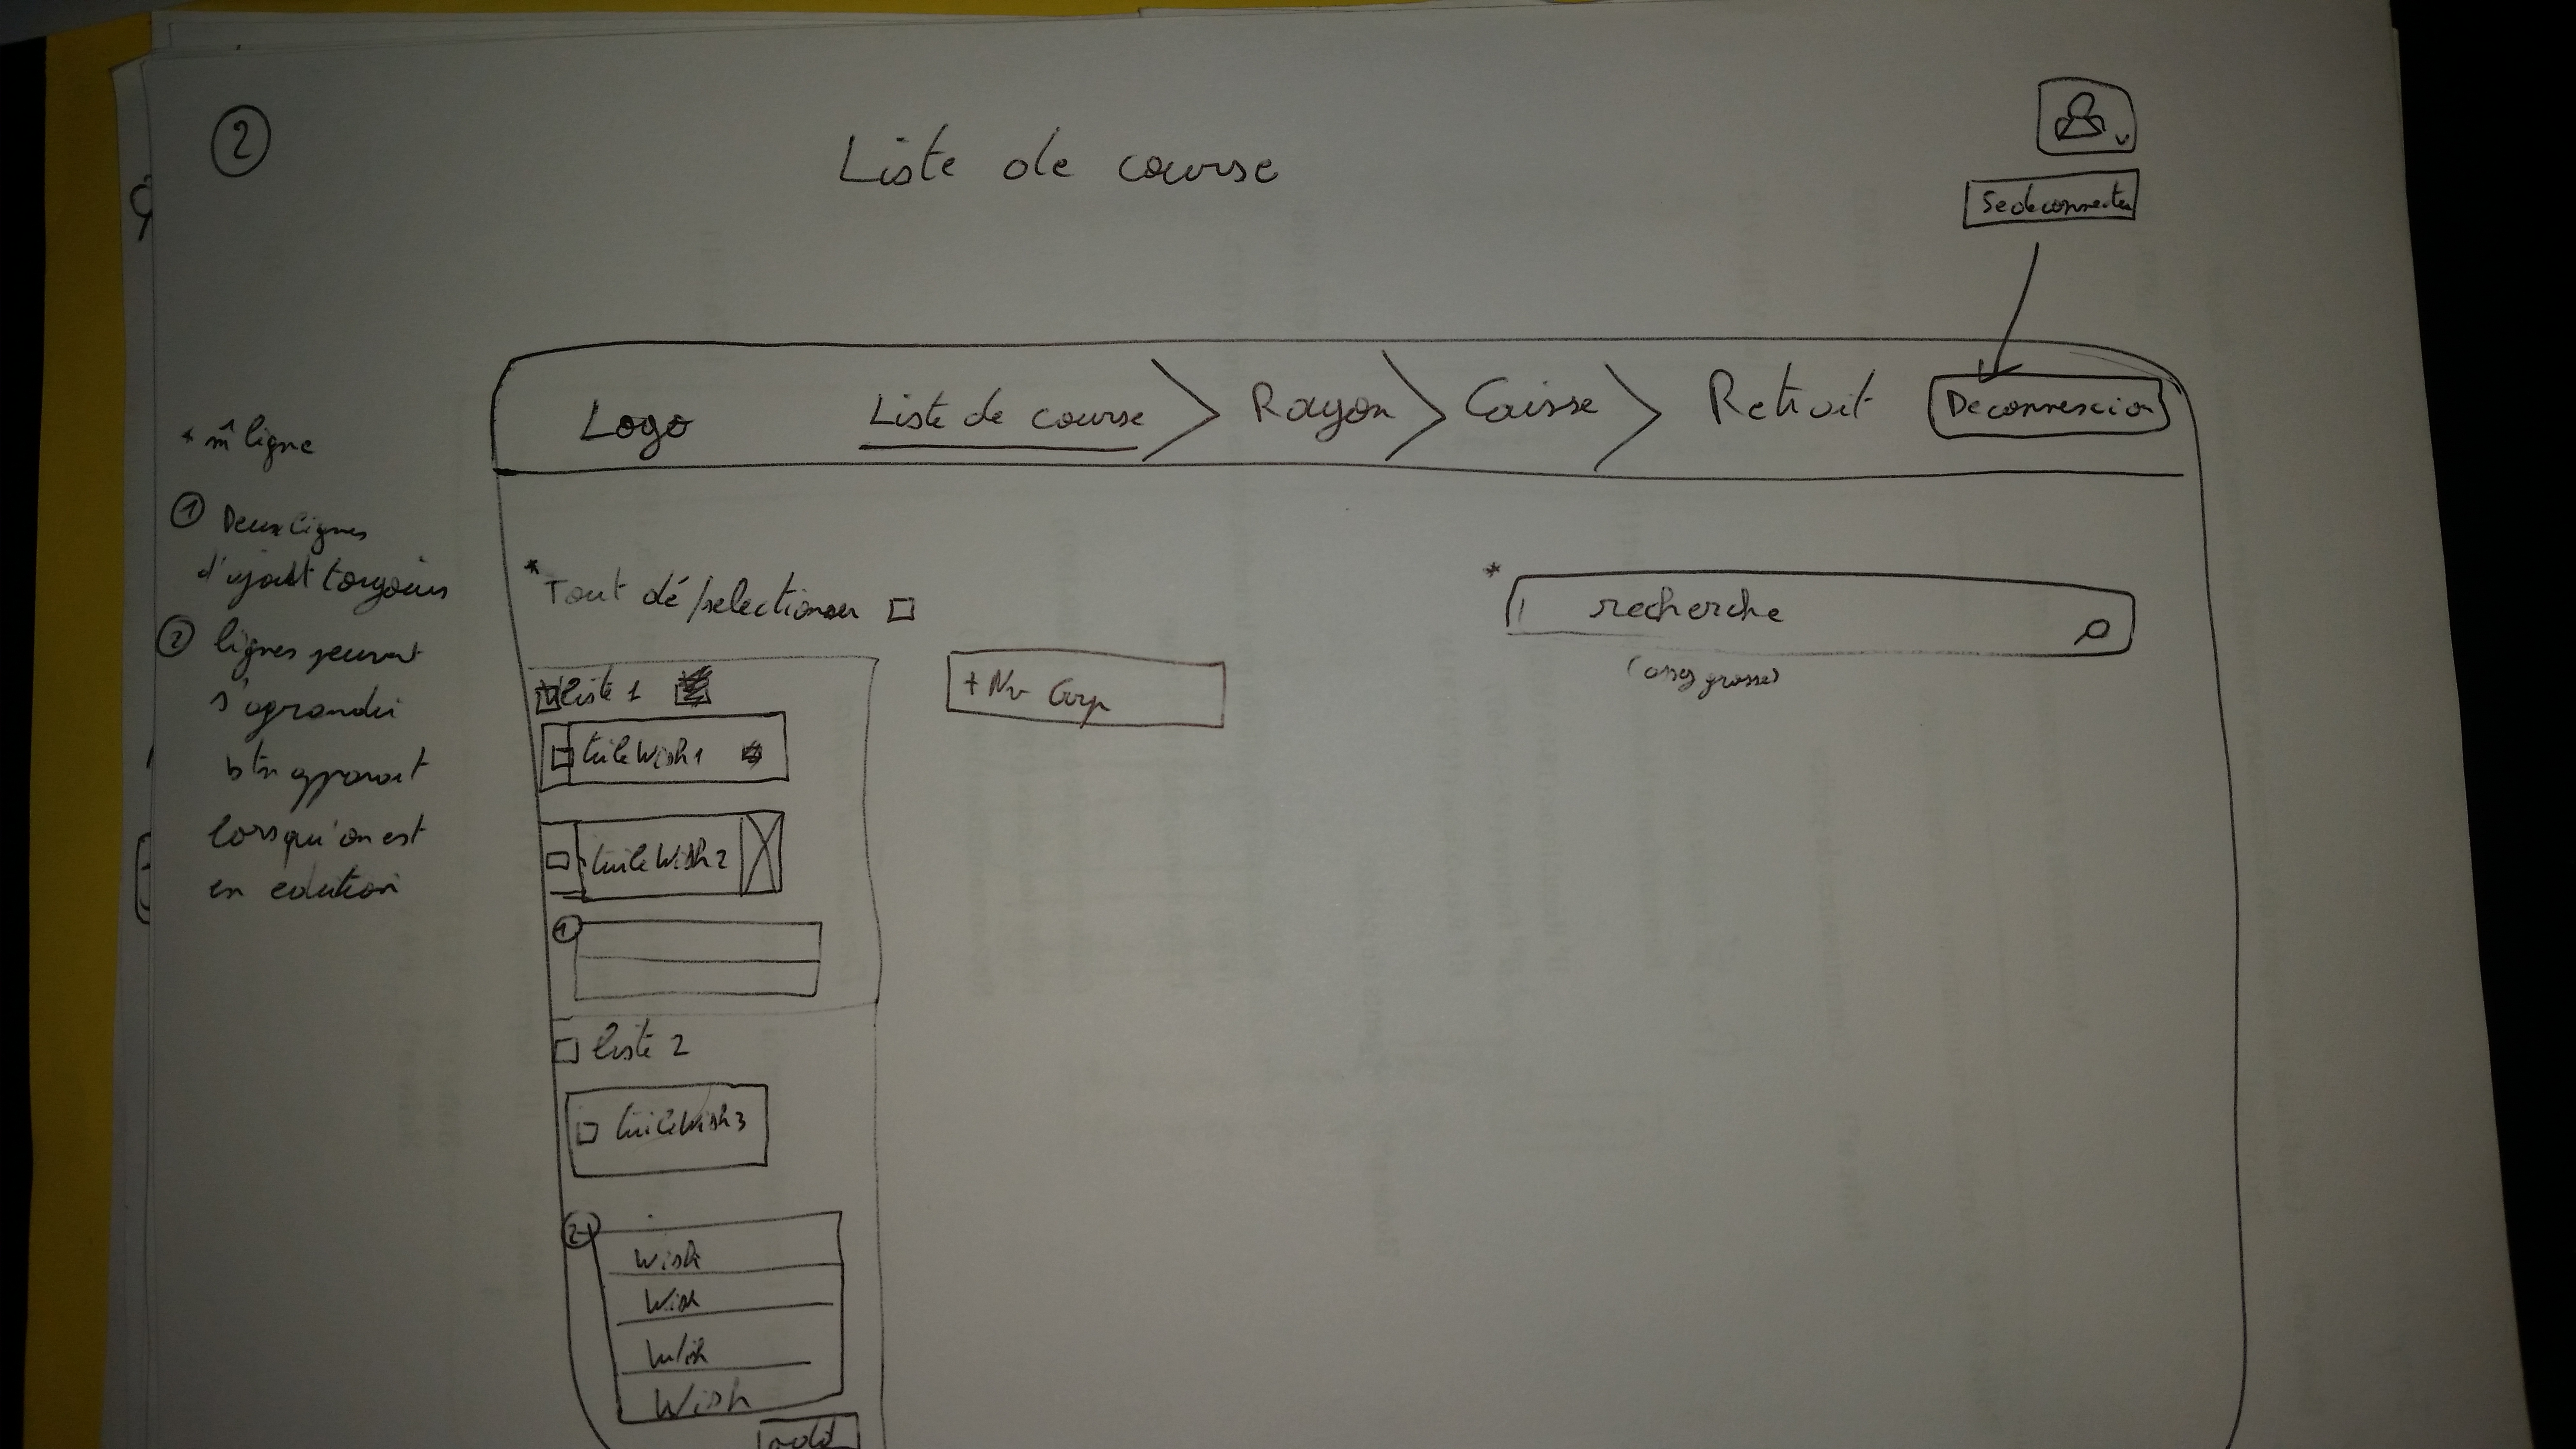 2
Liste de course
Se deconnecter
Logo
Liste de course
Rayon
Caisse
Retrait
Deconnexion
* m̂ ligne
1 Deux lignes
d'ajout toujours
2 lignes peuvent
s'agrandir
btn apparait
lorsqu'on est
en edition
* Tout dé/selectionner
* recherche
(assez grosse)
liste 1
+ Nv Grp
tuileWish1
tuileWish2
1
liste 2
tuileWish3
2
Wish
Wish
Wish
Wish
add